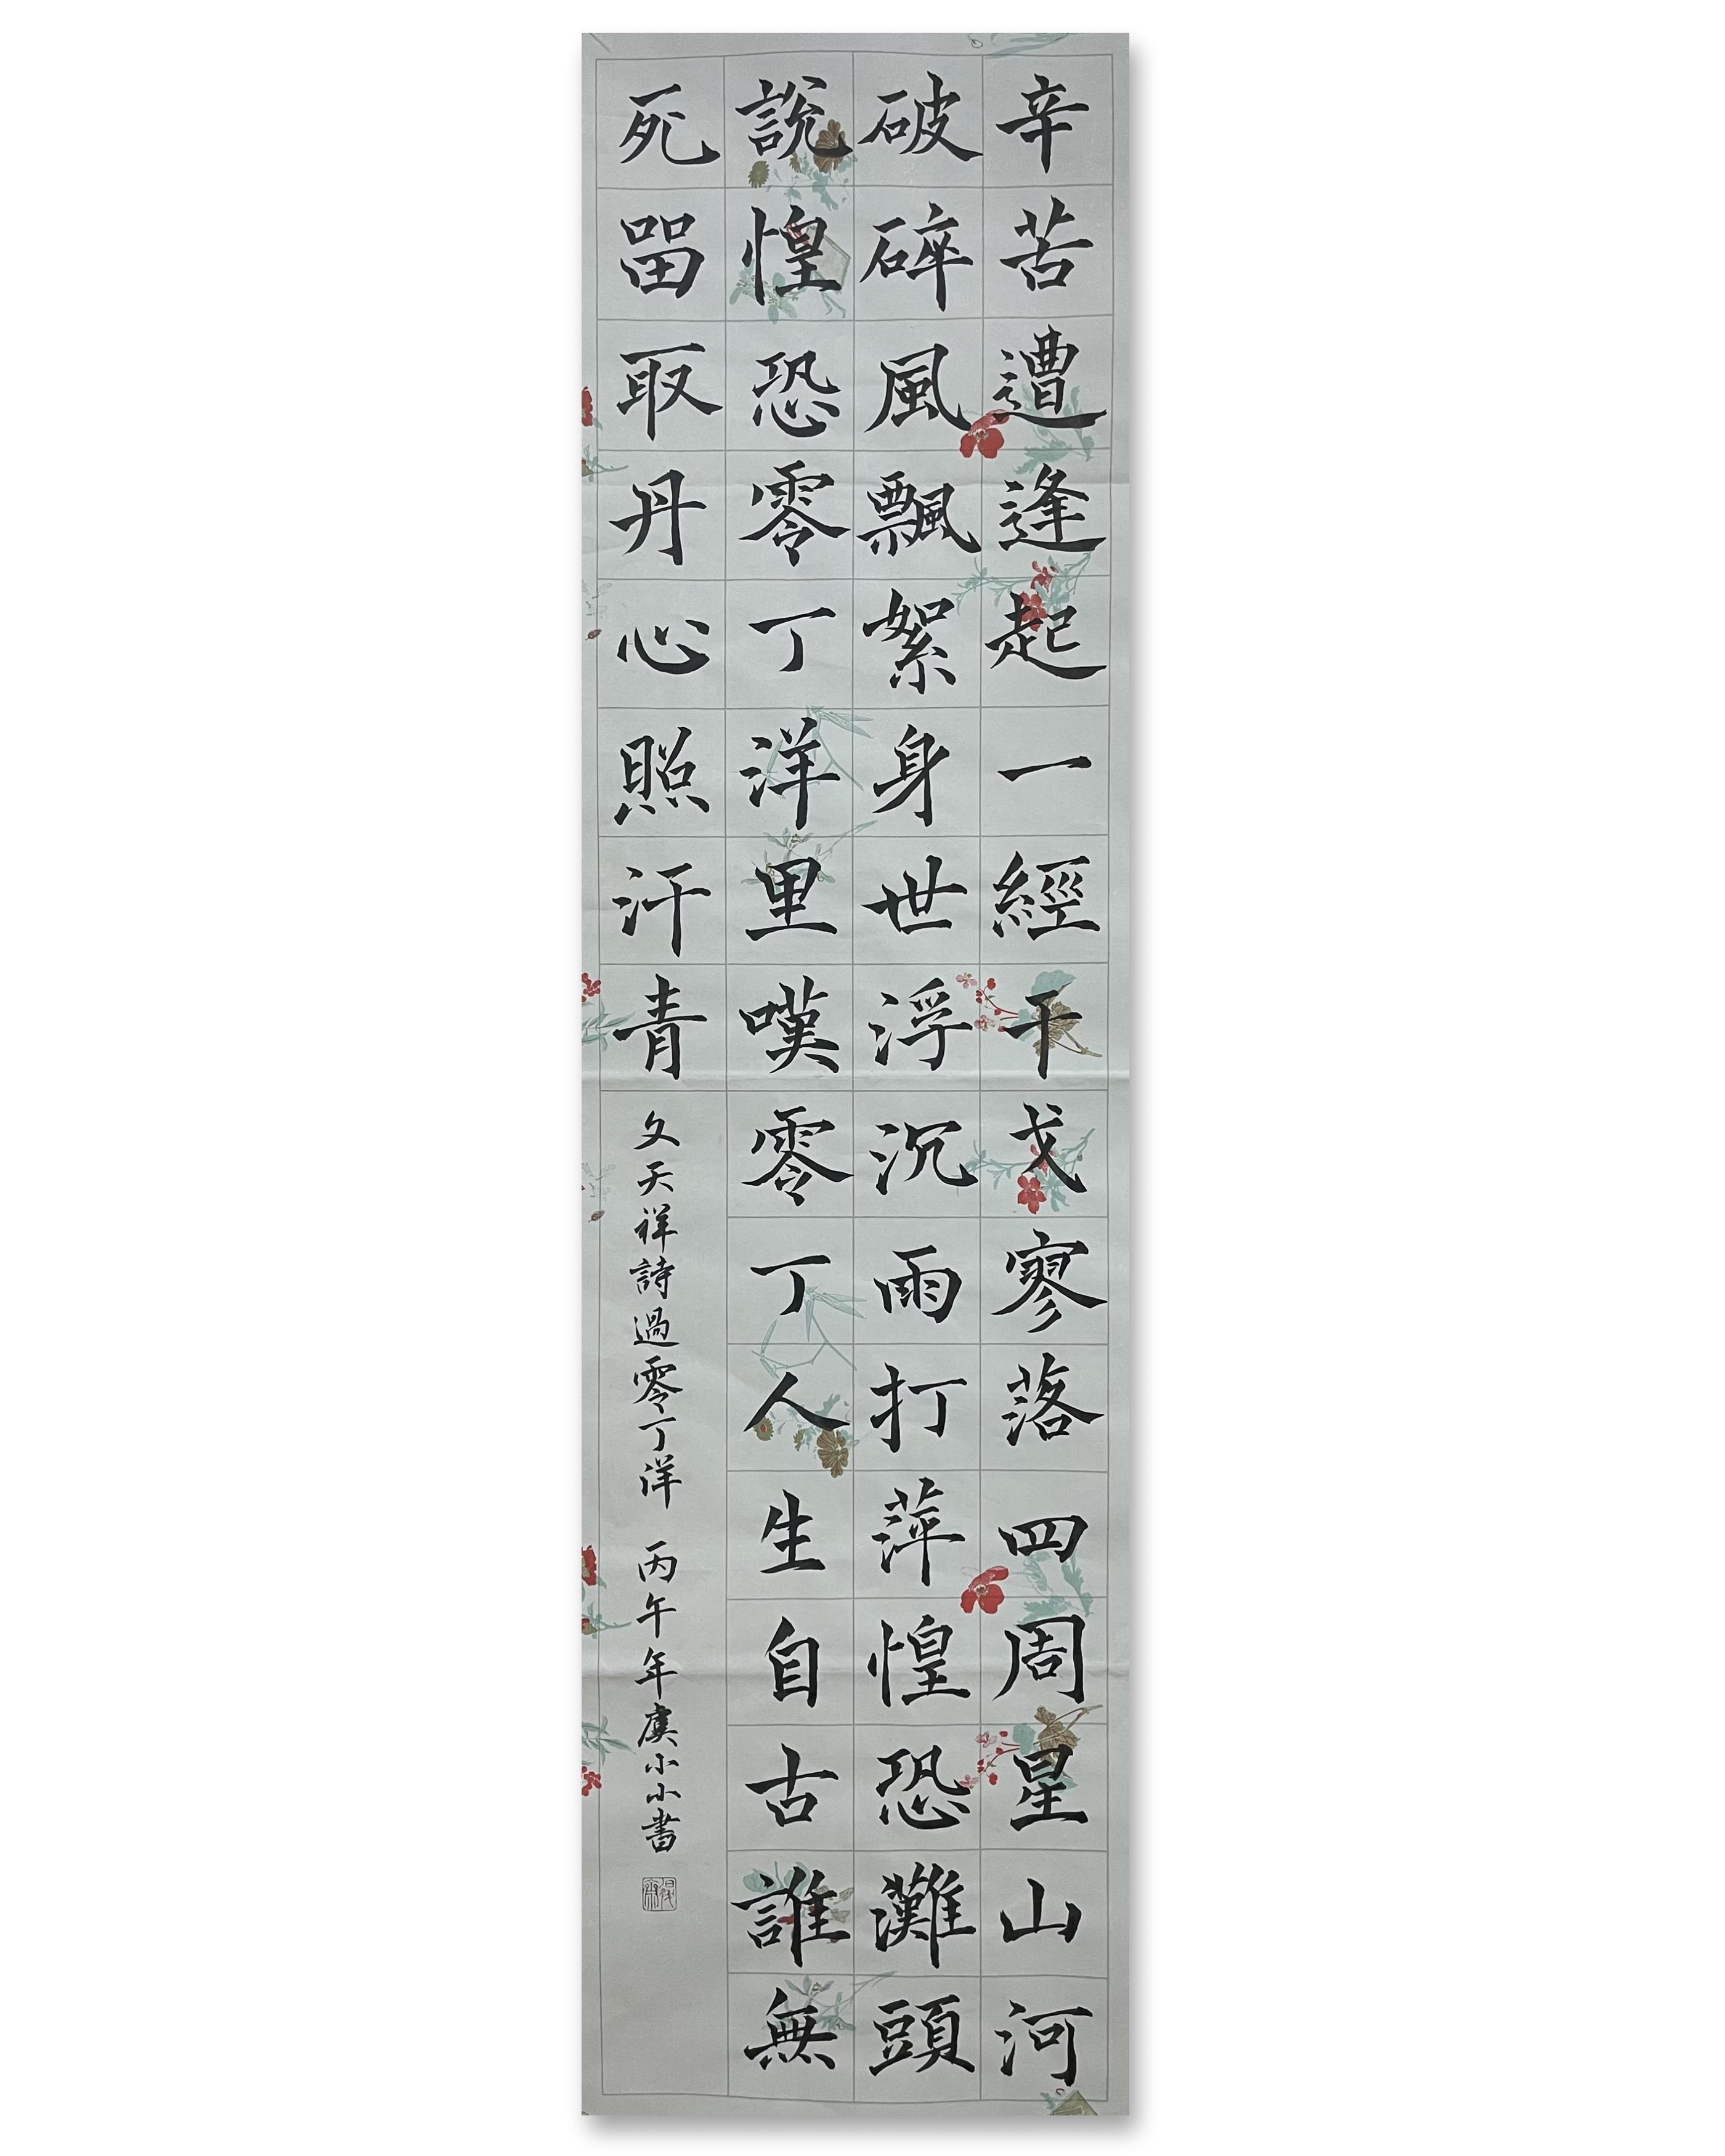 辛苦遭逢起一經干戈寥落四周星山河
破碎風飄絮身世浮沉雨打萍惶恐灘頭
說惶恐零丁洋里嘆零丁人生自古誰無
死畱取丹心照汗青
文天祥詩過零丁洋 丙午年虞小小書